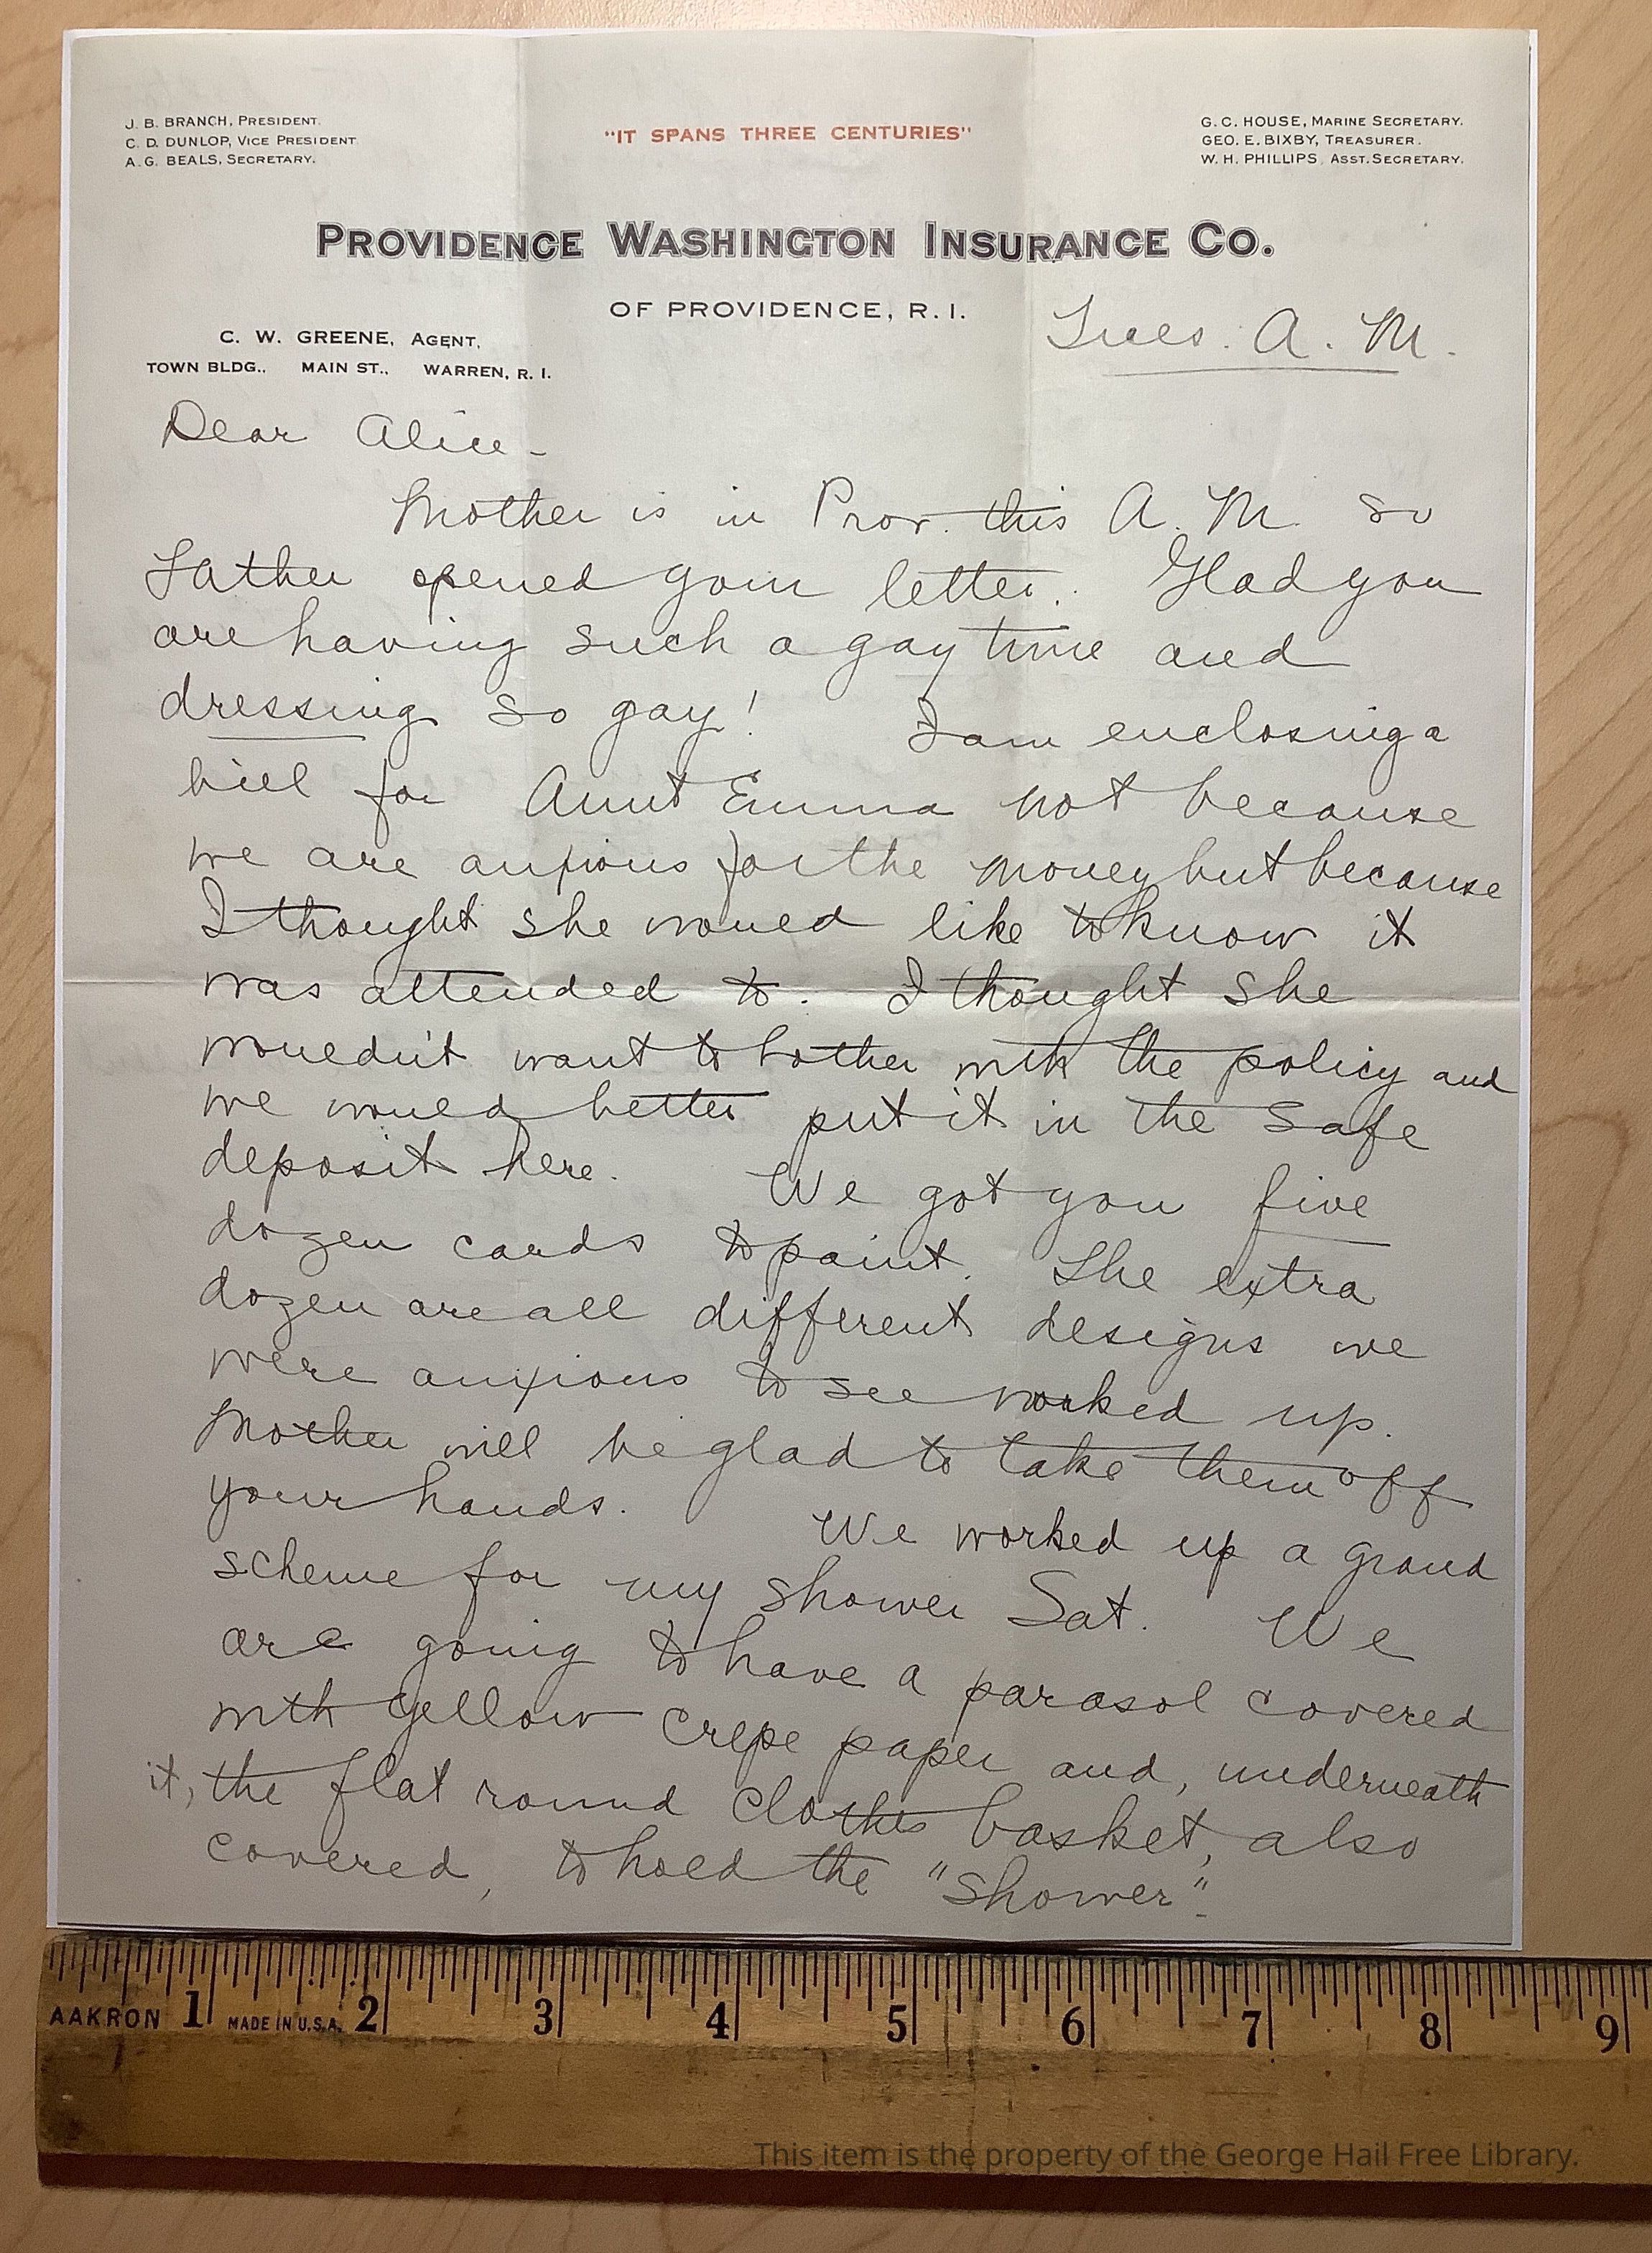 J. B. BRANCH, PRESIDENT.
C. D. DUNLOP, VICE PRESIDENT
A. G. BEALS, SECRETARY.
"IT SPANS THREE CENTURIES"
G. C. HOUSE, MARINE SECRETARY.
GEO. E. BIXBY, TREASURER.
W. H. PHILLIPS, ASST. SECRETARY.
PROVIDENCE WASHINGTON INSURANCE CO.
OF PROVIDENCE, R. I.
C. W. GREENE, AGENT,
TOWN BLDG., MAIN ST., WARREN, R. I.
Tues. A. M.
Dear Alice -
Mother is in Prov. this A. M. so
Father opened your letter. Glad you
are having such a gay time and
dressing so gay! I am enclosing a
bill for Aunt Emma not because
we are anxious for the money but because
I thought she would like to know it
was attended to. I thought she
wouldn't want to bother with the policy and
we would better put it in the safe
deposit here. We got you five
dozen cards to paint. The extra
dozen are all different designs we
were anxious to see worked up.
Mother will be glad to take them off
your hands. We worked up a grand
scheme for my shower Sat. We
are going to have a parasol covered
with yellow crepe paper and, underneath
it, the flat round clothes basket, also
covered, to hold the "shower".
AAKRON 1 MADE IN U.S.A. 2 3 4 5 6 7 8 9
This item is the property of the George Hail Free Library.